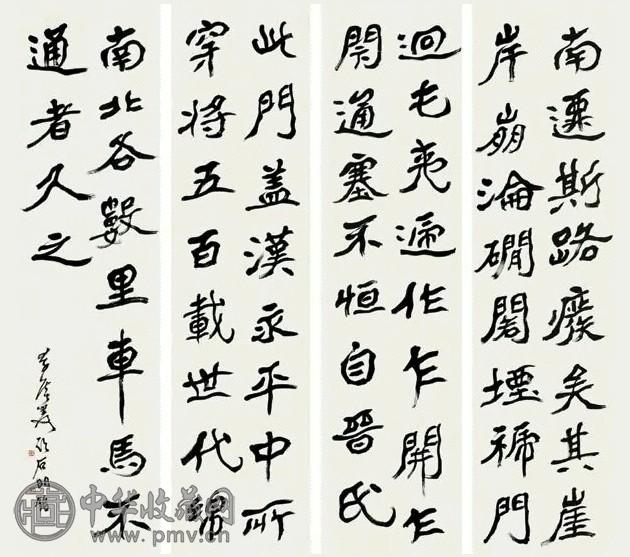 南遷斯路廢矣其崖
岸崩淪磵閣堙褫門
迴屯夷遞作乍開乍
閇通塞不恒自晉氏
此門蓋漢永平中所
穿將五百載世代綿
南北各數里車馬不
通者久之
石門銘
中华收藏网
www.pmv.cn